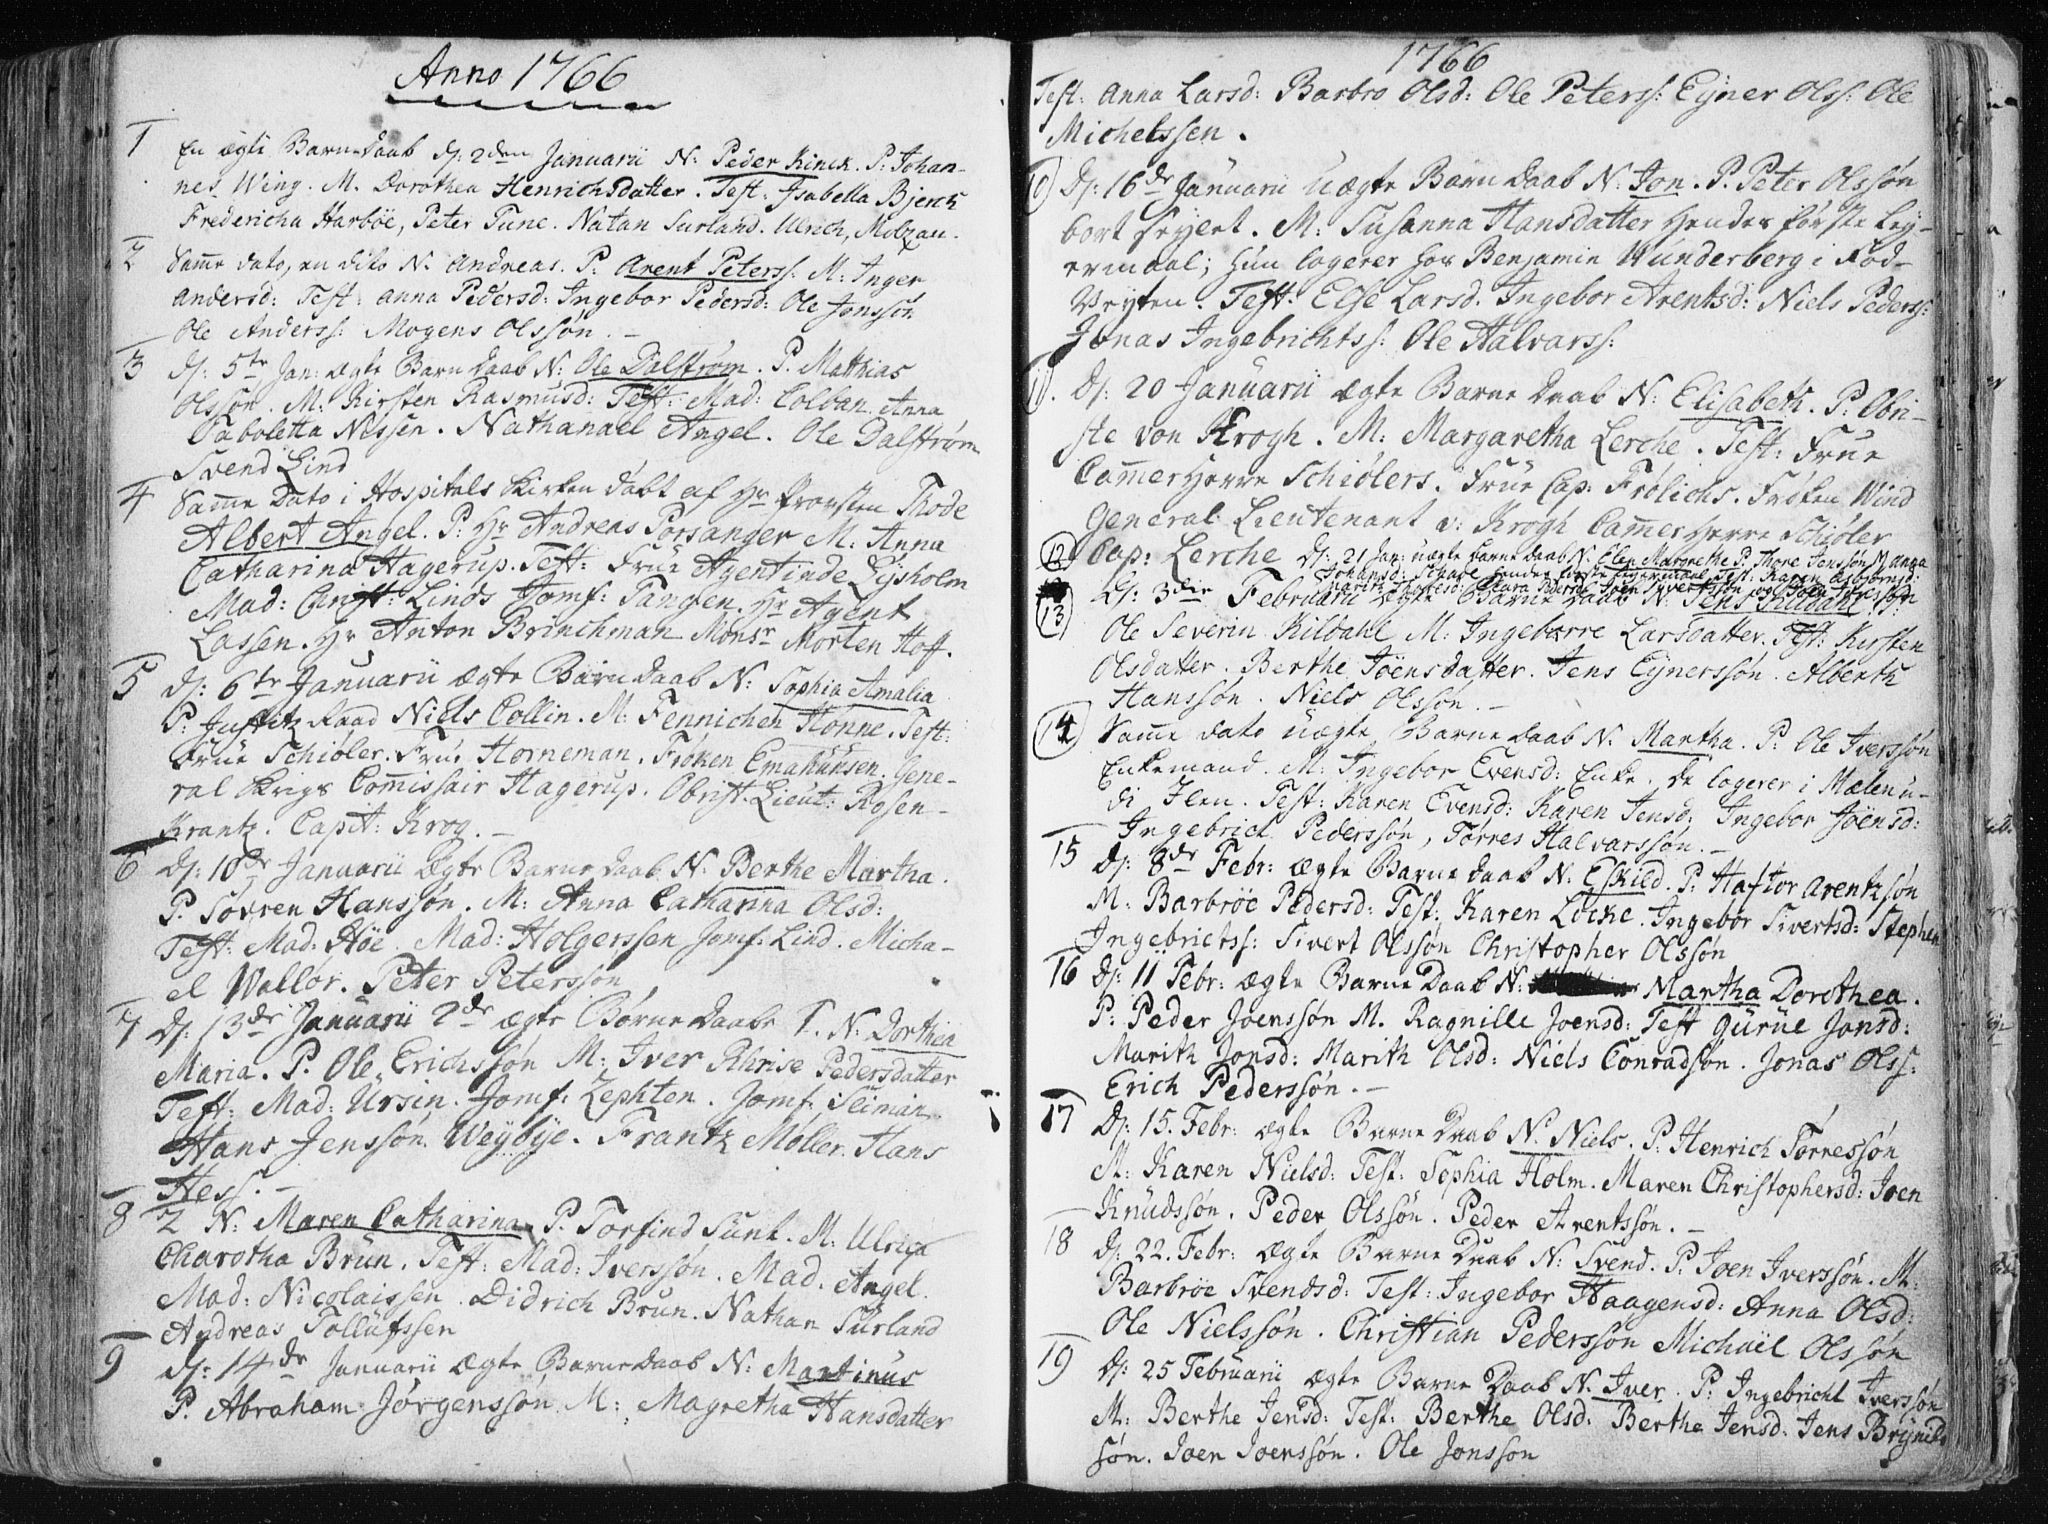 Anno 1766
1 En ægte Barne Daab d: 2den Januarii N: Peder Kinck. P: Johan-
nes Wing. M. Dorothea Henrichsdatter. Test: Isabella Bjerck
Fredericha Harböe, Peter Tune. Natan Surland. Ulrich, Molzau.
2 Samme dato, en dito N. Andreas. P: Arent Peterss: M: Inger
Andersd: Test: Anna Pedersd: Ingebor Pedersd: Ole Jonssön
Ole Anderss: Mogens Olssön.
3 D: 5te Jan: ægte Barne Daab N: Ole Dalström. P. Mathias
Olssön. M. Kirsten Rasmusd: Test: Mad: Colban Anna
Taboletta Nissen. Nathanael Angel. Ole Dalström
Svend Lind
4 Samme Dato i Hospitals Kirken döbt af Hr Provsten Thode
Albert Angel. P: Hr Andreas Porsanger M: Anna
Catharina Hagerup. Test: Frue Agentinde Lysholm
Mad: Linds Jomf: Tangen. Hr Agent
Lassen. Hr Anton Brinchman Monsr Morten Hoff.
5 D: 6te Januarii ægte Barne Daab N: Sophia Amalia
P: Justitz Raad Niels Collin. M: Fennichen Hönne. Test:
Frue Schiöler. Frue Horneman. Fröken Emahuusen. Gene-
ral Krigs Comissair Hagerup. Obrist: Lieut: Rosen-
Krantz. Capit: Krog.
6 D: 10de Januarii Ægte Barne Daab N: Berthe Martha.
P. Sövren Hanssön. M: Anna Catharina Olsd:
Test: Mad: Höe. Mad: Holgerssen, Jomf: Lind. Micha-
el Wallör. Peter Peterssön
7 D: 13de Januarii 2de ægte Börne Daabe 1. N: Dorthea
Maria. P. Ole Erichssön M: Iver Khrise Pedersdatter
Test: Mad: Ursin. Jomf: Zephten. Jomf: Sliman
Hans Jenssön Weybye. Frantz Möller. Hans
Hess.
8 2 N: Maren Catharina P. Torfind Sunt. M: Ulrica
Charotha Brun. Test: Mad: Iverssön. Mad. Angel.
Mad: Nicolaissen. Didrich Brun. Nathan Surland
Andreas Tollufssen
9 D: 14de Januarii ægte Barne Daab N: Martinus
P. Abraham Jörgenssön M: Magretha Hansdatter
1766
Test: Anna Larsd: Barbro Olsd: Ole Peterss: Eyner Olss: Ole
Michelssen.
10 D: 16de Januarii Uægte Barn Daab N: Jon. P. Peter Olssön
bort seylet. M: Susanna Hansdatter hendes förste Ley-
ermaal; hun logerer hos Benjamin Wunderberg i Fod-
Veyten. Test: Else Larsd. Ingebor Arentsd: Niels Pederss:
Jonas Ingebrichtss: Ole Halvarss:
11. D: 20 Januarii ægte Barne Daab N: Elisabeth. P: Obri-
ste von Krogh. M: Margaretha Lerche. Test: Frue
CammerHerre Schiölers. Frue Cap: Frölichs. Fröken Wind
General Lieutenant v: Krogh CammerHerre Schiöler
Cap: Lerche
12 D: 21 Jan: uægte Barne Daab N. Elen Margrethe P. Thore Jenssön M Anna
Johansd: hendes förste leyermaal Test: Karen Asbjörnsd:
13 D: 3die Februarii ægte Barne Daab N: Jens Kildahl P:
Ole Severin Kildahl M: Ingeborre Larsdatter. Test: Kirsten
Olsdatter. Berthe Jöensdatter. Jens Eynerssön. Alberth
Hanssön. Niels Olssön.
14 Samme dato uægte Barne Daab N. Martha. P: Ole Iverssön
Enkemand. M: Ingebor Evensd: Enke. de logerer i Mælen u-
di Ilen. Test: Karen Evensd: Karen Jensd: Ingebor Jöensd:
Ingebrict Pederssön, Törres Halvarssön.
15 D: 8de Febr: ægte Barne Daab N: Eskild. P: Haftor Arentzsön
M: Barbröe Pedersd: Test: Karen Locke. Ingebor Sivertsd: Stephen
Ingebrictss: Sivert Olssön Christopher Olssön
16 D: 11 Febr: ægte Barne Daab N: Martha Dorothea.
P: Peder Joenssön M. Ragnille Joensd: Test Gurue Jonsd:
Marith Jonsd: Marith Olsd: Niels Conradsön. Jonas Olss:
Erich Pederssön.
17 D: 15. Febr: ægte Barne Daab N. Niels. P: Henrich Törressön
M: Karen Nielsd: Test: Sophia Holm. Maren Christophersd: Joen
Knudssön. Peder Olssön. Peder Arentssön.
18 D: 22. Febr: Ægte Barne Daab N: Svend. P: Joen Iverssön. M:
Barbröe Svendsd: Test: Ingebor Haagensd: Anna Olsd:
Ole Nielssön. Christian Pederssön Michael Olssön
19 D: 25 Februarii ægte Barne Daab N. Iver. P: Ingebricht Iverssön
M: Berthe Jensd: Test: Berthe Olsd: Berthe Jensd: Jens Brynild
sön. Joen Joenssön. Ole Jonsson